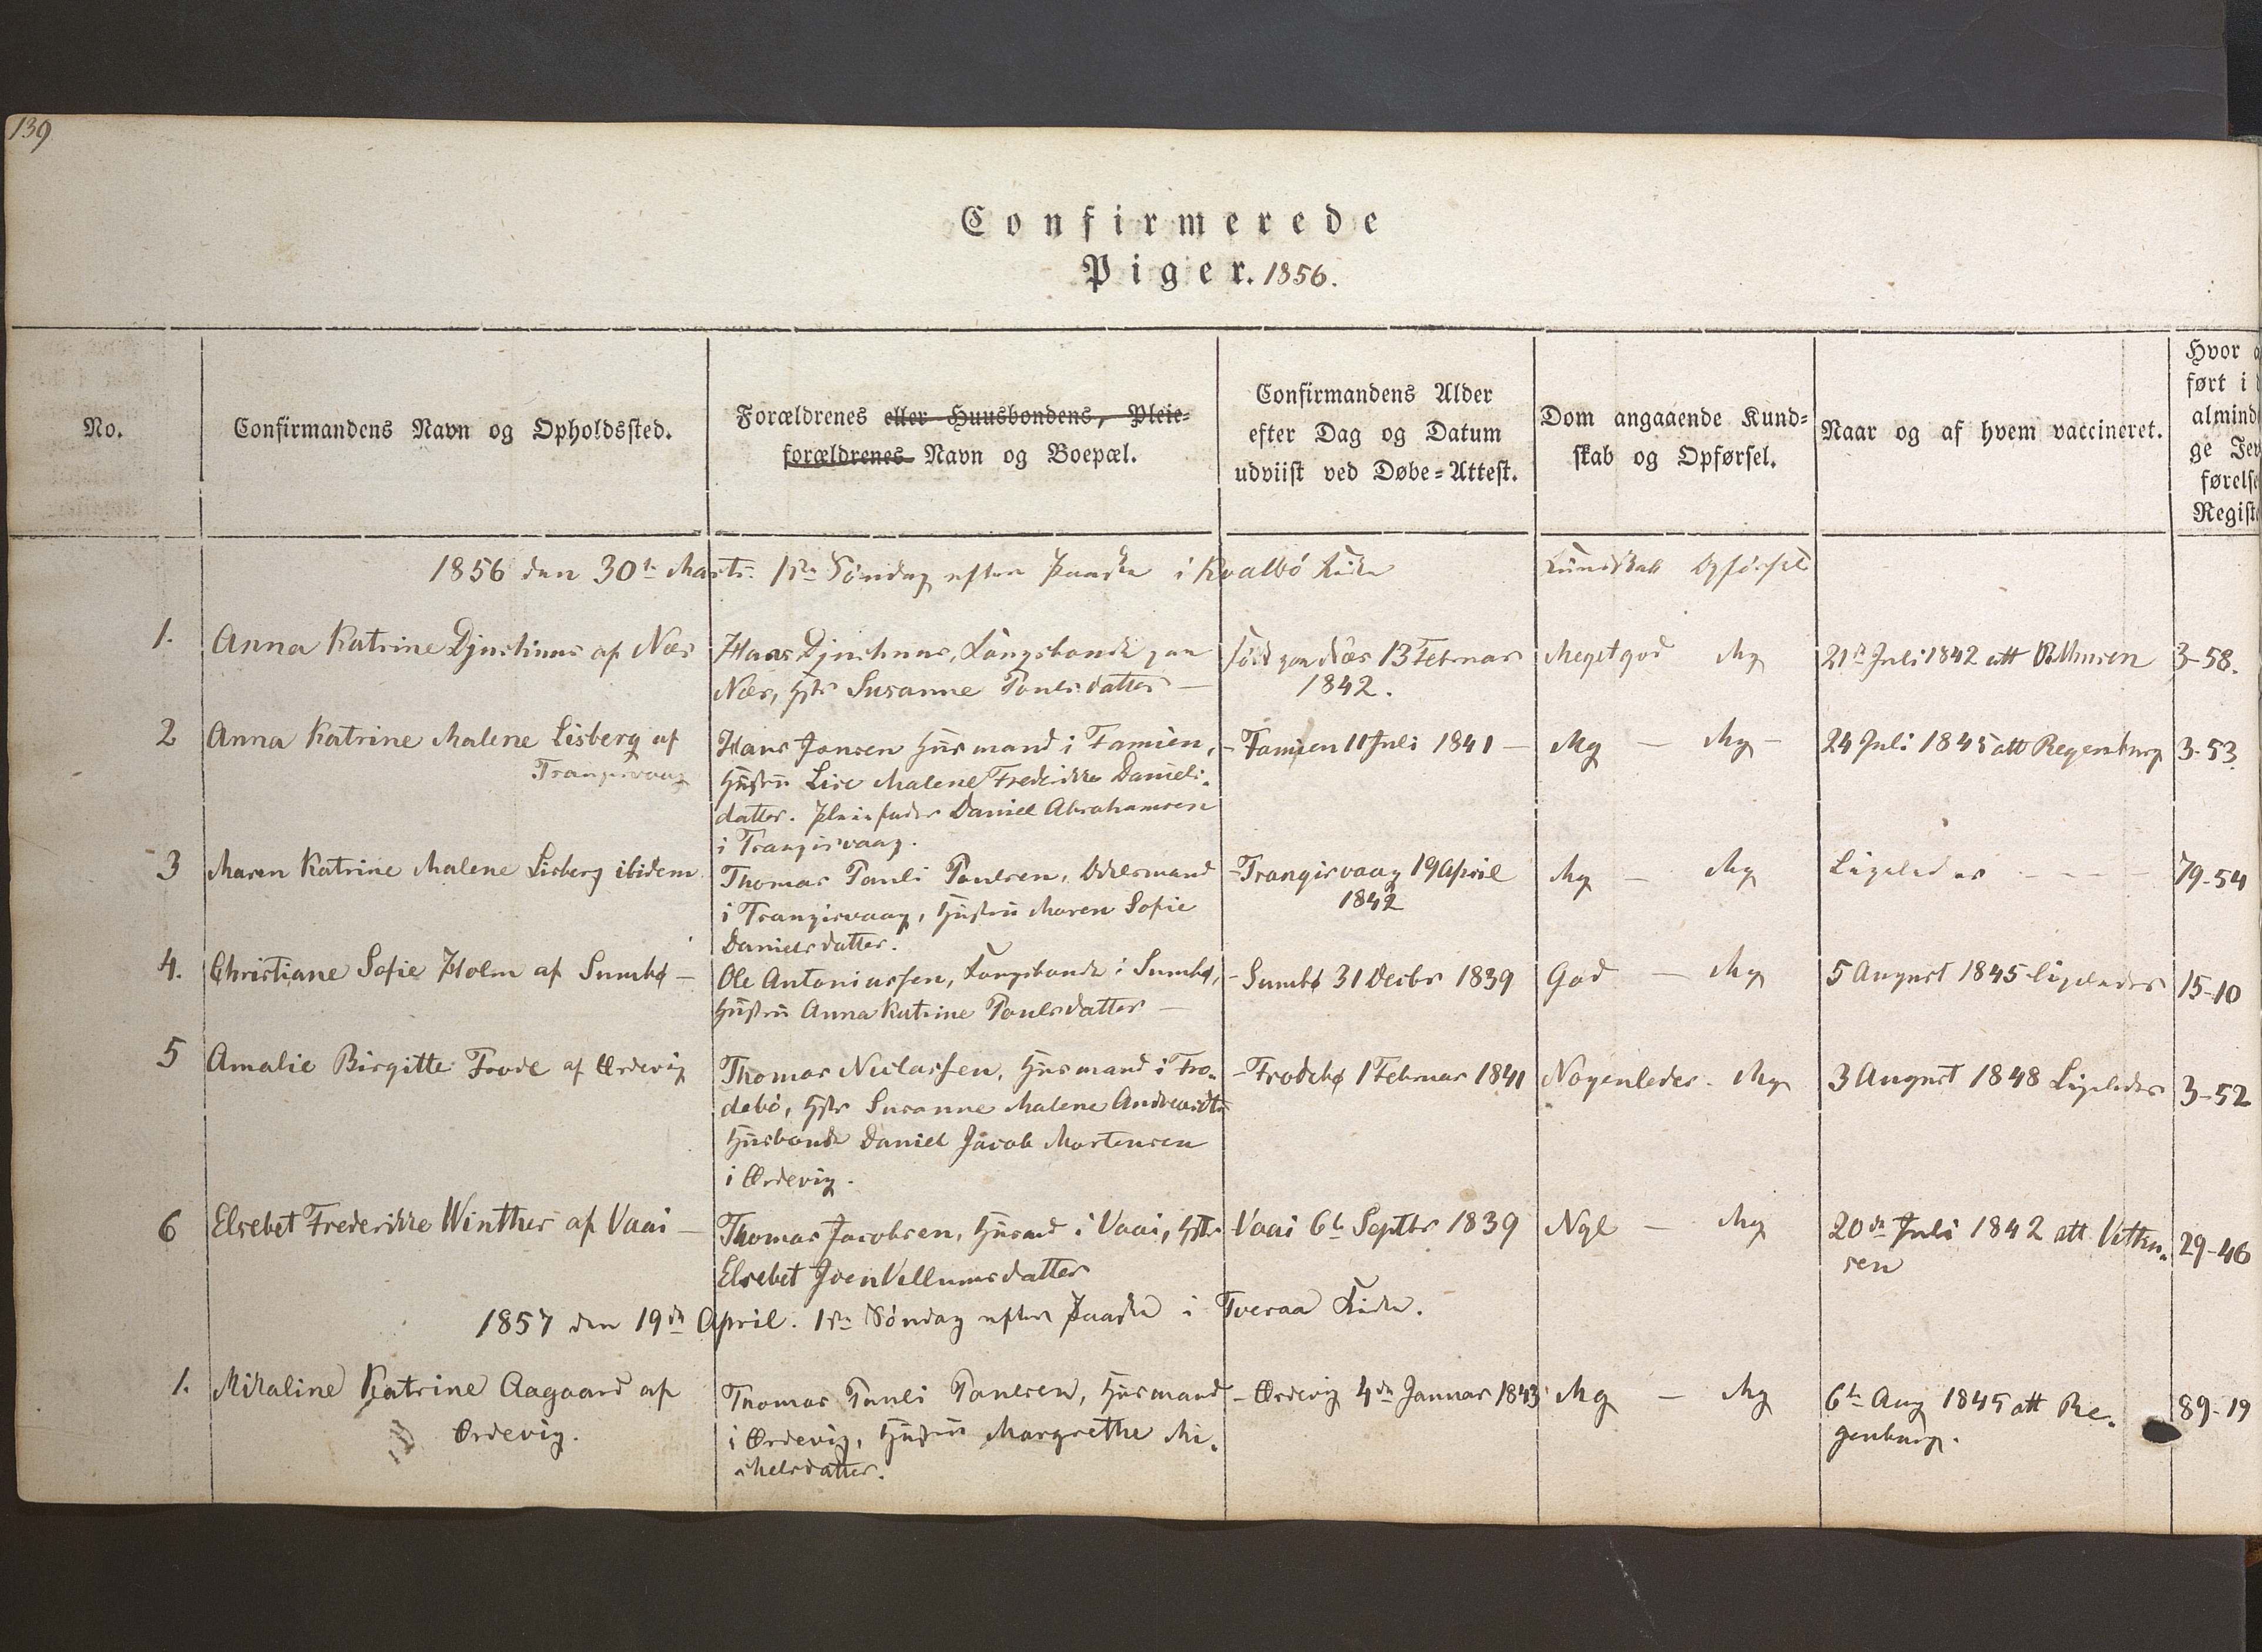 139
Confirmerede
Piger. 1856.
No.
Confirmandens Navn og Opholdssted.
Forældrenes eller Huusbondens, Pleie-
forældrenes Navn og Boepæl.
Confirmandens Alder
efter Dag og Datum
udviist ved Døbe-Attest.
Dom angaaende Kund-
skab og Opførsel.
Naar og af hvem vaccineret.
Hvor
ført i
almind
ge Jev
førelse
Regist
1856 den 30te Marts. 1ste Söndag efter Paaske i Kvalbö Kirke
Kundskab Opförsel
1.
Anna Katrine Djurhuus af Næs
Hans Djurhuus, Kongsbonde paa
Næs, Hstr Susanne Poulsdatter —
Född paa Næs 13 Februar
1842.
Megetgod Mg
21de Juli 1842 att
3-58.
2
Anna Katrine Malene Lisberg af
Trangisvaag
Hans Jansen Husmand i Famien,
Hustru Lise Malene Frederikke Daniels-
datter. Pleiefader Daniel Abrahamsen
i Trangisvaag.
- Famien 11 Juli 1841 —
Mg — Mg —
24 Juli 1845 att Regenburg
3-53.
3
Maren Katrine Malene Lisberg ibidem
Thomas Pauli Poulsen, Odelsmand
i Trangisvaag, Hustru Maren Sofie
Danielsdatter.
- Trangisvaag 19 April
1842
Mg — Mg
Ligeledes - - -
79-54
4.
Christiane Sofie Holm af Sumbø —
Ole Antoniassen, Kongsbonde i Sumbø,
Hustru Anna Katrine Poulsdatter —
- Sumbø 31 Decbr 1839
God — Mg
5 August 1845 ligeledes
15-10
5
Amalie Birgitte Frode af Ørdevig
Thomas Niclassen, Husmand i Fro-
debö, Hstr Susanne Malene Andreasdtr
Husbonde Daniel Jacob Mortensen
i Ørdevig.
- Frodebø 1 Februar 1841
Nogenledes - Mg
3 August 1848 Ligeledes
3-52
6
Elsebet Frederikke Winther af Vaai —
Thomas Jacobsen, Husmd i Vaai, Hstr
Elsebet JoenVellumsdatter
Vaai 6te Septbr 1839
Ngl — Mg
20de Juli 1842 att
sen
29-46
1857 den 19de April. 1ste Söndag efter Paaske i Tveraa Kirke.
1.
Mikaline Katrine Aagaard af
Ørdevig.
Thomas Pauli Poulsen, Husmand
i Ørdevig, Hustru Margrethe Mi-
chelsdatter.
- Ørdevig 4de Januar 1843
Mg — Mg
6te Aug 1845 att Re-
genburg.
89-19